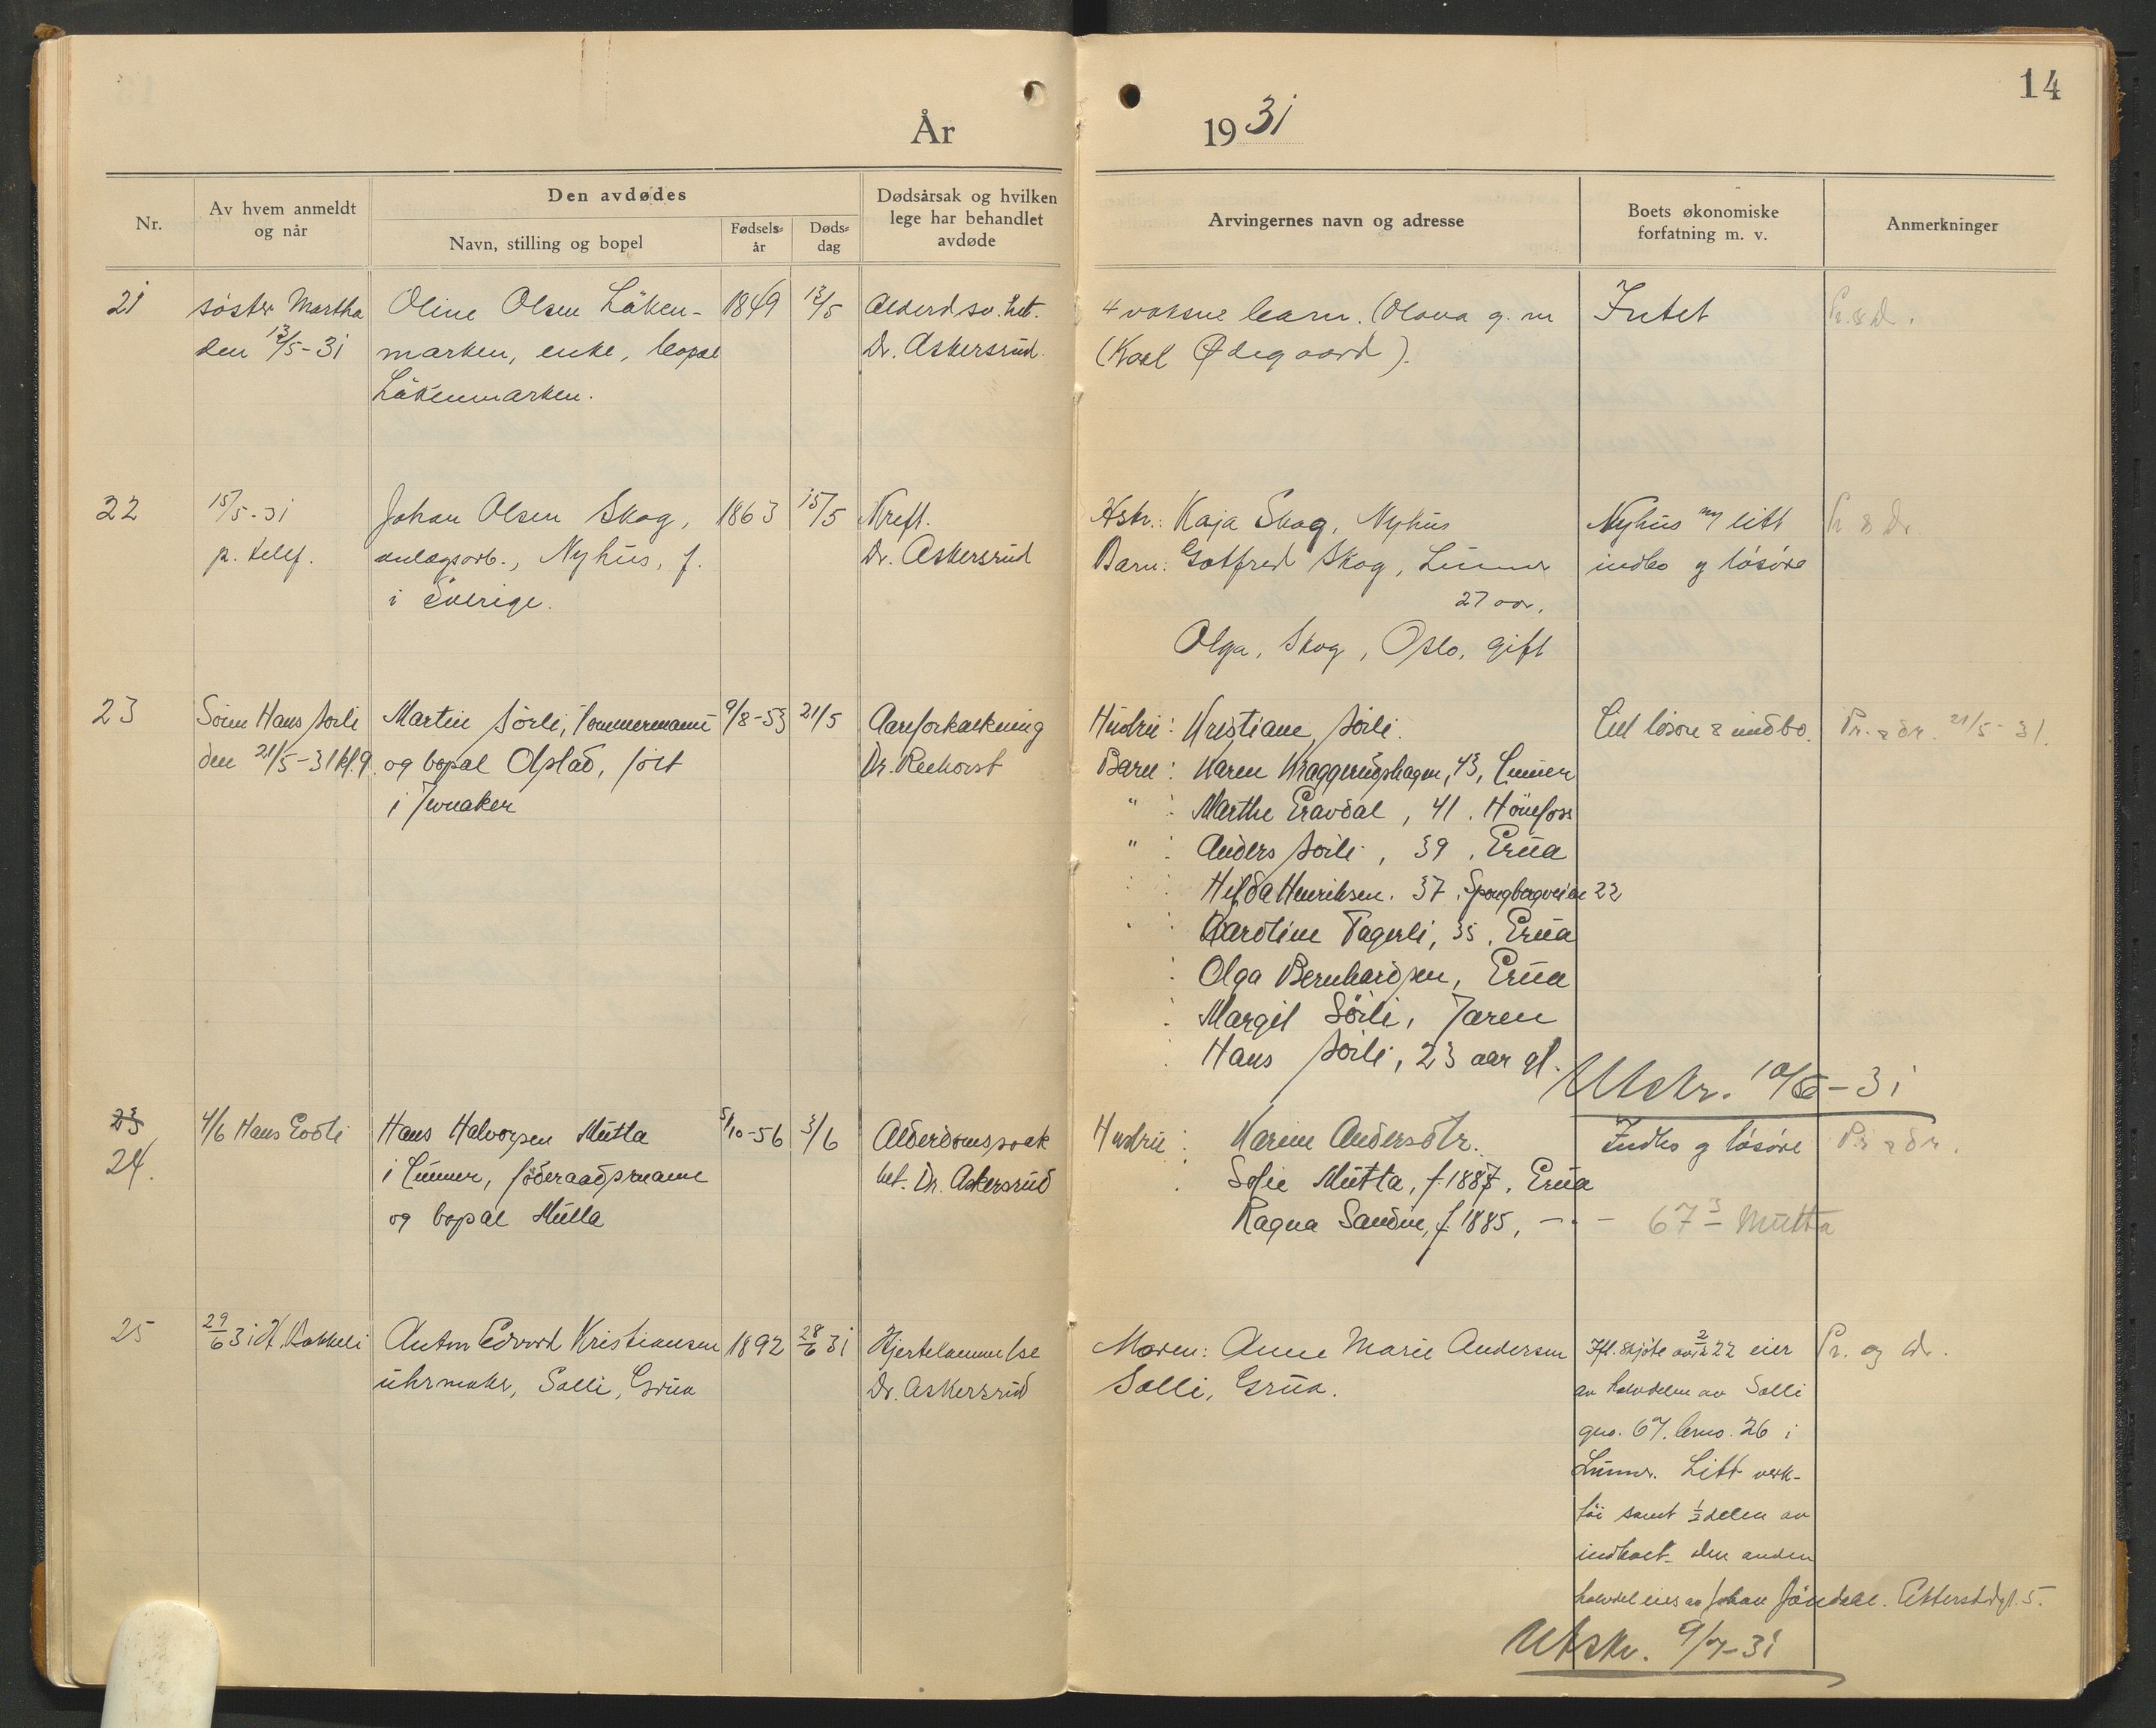 14
År 1931
Nr.
Av hvem anmeldt
og når
Den avdødes
Navn, stilling og bopel
Fødsels-
år
Døds-
dag
Dødsårsak og hvilken
lege har behandlet
avdøde
Arvingernes navn og adresse
Boets økonomiske
forfatning m. v.
Anmerkninger
21
søster Martha
den 13/5-31
Oline Olsen Låken-
marken, enke, bopæl
Låkenmarken.
1849
12/5
Alderdsv.het.
Dr. Askersrud.
4 voksne barn. (Olava g. m
(Karl Ødegaard).
Intet
Pr. & d.
22
15/5-31
p. telef.
Johan Olsen Skog,
anlægsarb., Nyhus, f.
i Sverige.
1863
15/5
Kreft.
Dr. Askersrud
Hstr.: Kaja Skog, Nyhus
Barn: Gotfred Skog, Lunner
27 aar.
Olga, Skog, Oslo, gift
Nyhus og litt
indbo og løsøre
Pr. & dr.
23
Sönn Hans Sörli
den 21/5-31 kl. 9.
Martin Sörli, tömmermann
og bopæl Olstad, föit
i Jevnaker
9/8-53
21/5
Aareforkalkning
Dr. Reehorst
Hustru: Kristiane Sörli.
Barn: Karen Kraggerudshagen, 43, Lunner
" : Marthe Gravdal, 41. Hönefoss
" : Anders Sörli, 39, Grua
Hilda Henriksen. 37. Spongbergveien 22
Karoline Fagerli, 35, Grua
Olga Bernhardsen, Grua
Margit Sörli, Jaren
Hans Sörli, 23 aar gl.
Litt lösöre & indbo.
Pr. & dr. 21/5-31.
Utskr. 10/6-31
23
24.
4/6 Hans Godli
Hans Halvorsen Mutta
i Lunner, föderaadsmann
og bopæl Mutta
5/10-56
3/6
Alderdomssvak
het. Dr. Askersrud
Hustru: Karine Andersdtr.
Sofie Mutta, f. 1887, Grua
Ragna Sandm, f. 1885, - " -
Indbo og løsøre
67 3 Mutta
Pr. & dr.
25
29/6 31 H. Bakkeli
Anton Edvard Kristiansen
uhrmaker, Solli, Grua
1892
28/6 31
Hjertelammelse
Dr. Askersrud
Moren: Anne Marie Andersen
Solli, Grua.
Ifl. skjøte av 2/12 22 eier
av halvdelen av Solli
gno. 67. bruno. 26 i
Lunner. Litt verk-
töi samt 1/2 delen av
indboet. den anden
halvdel eies av Johan Jöndahl.
Utskr. 9/7-31